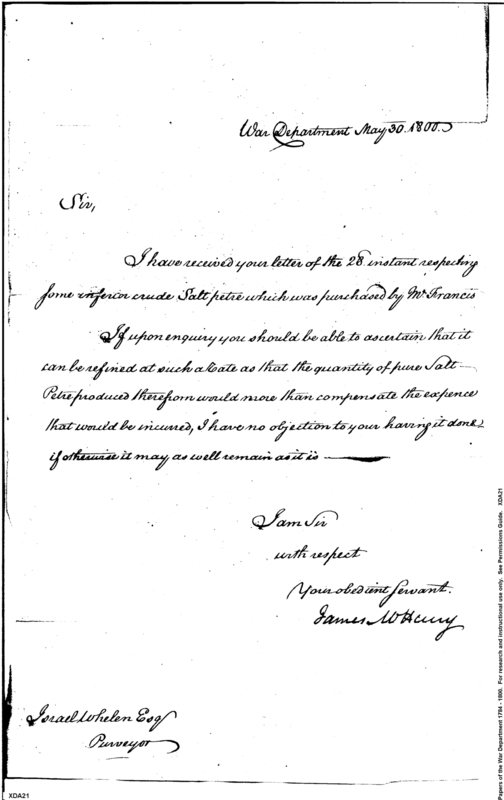 War Department May 30. 1800.
Sir,
I have received your letter of the 28 instant respecting
some inferior crude Salt petre which was purchased by Mr Francis
If upon enquiry you should be able to ascertain that it
can be refined at such a Rate as that the quantity of pure Salt
Petre produced therefrom would more than compensate the expence
that would be incurred, I have no objection to your having it done
if otherwise it may as well remain as it is
I am Sir
with respect
Your obedient Servant.
James McHenry
Israel Whelen Esqr
Purveyor
XDA21
Papers of the War Department 1784 - 1800. For research and instructional use only. See Permissions Guide. XDA21